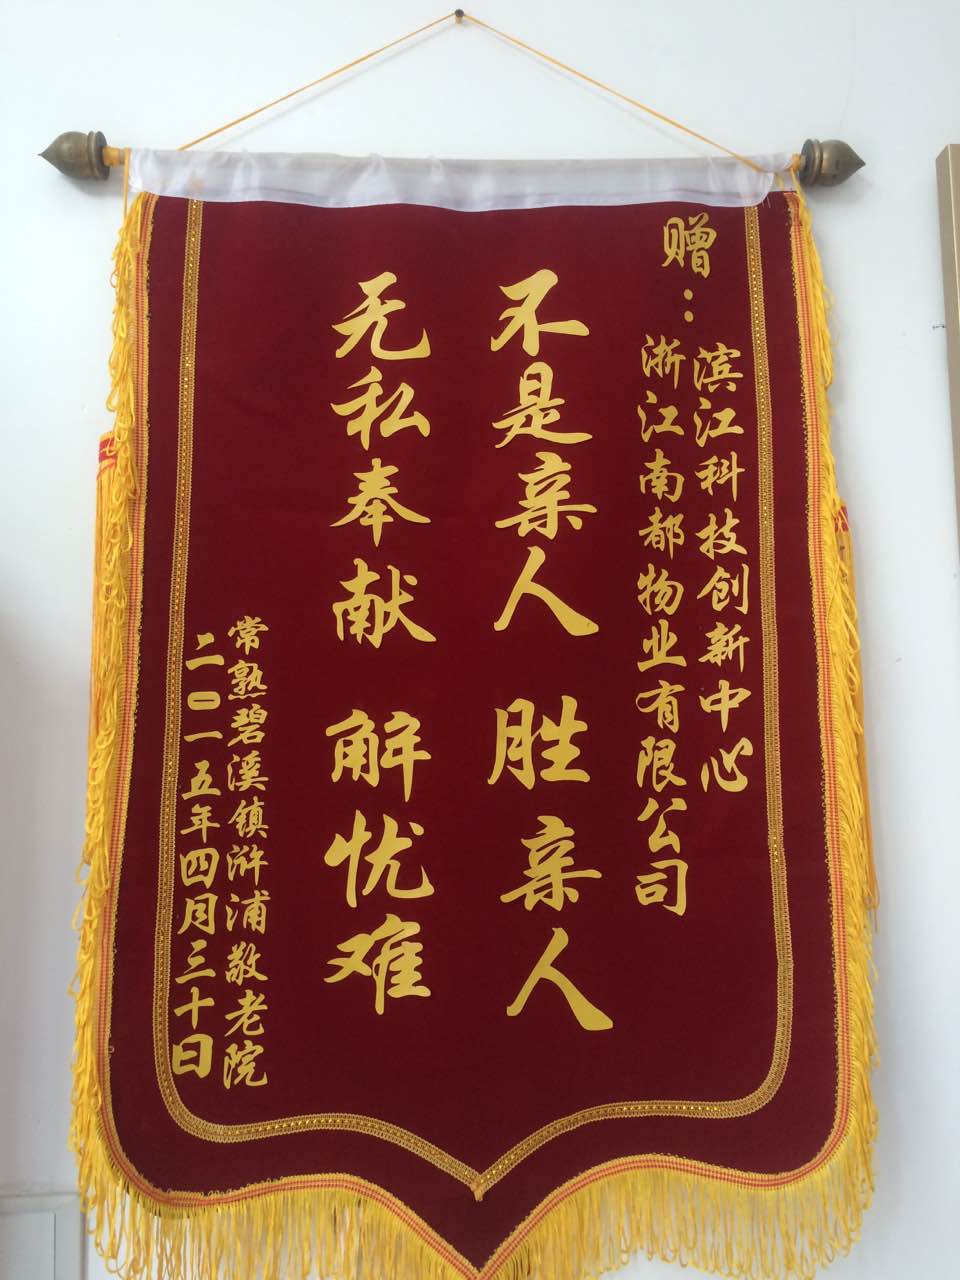 赠：
滨江科技创新中心
浙江南都物业有限公司
不是亲人 胜亲人
无私奉献 解忧难
常熟碧溪镇浒浦敬老院
二〇一五年四月三十日